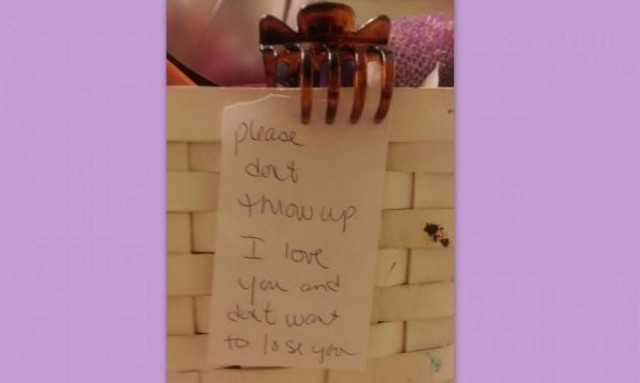 please
dont
throw up.
I love
you and
dont want
to lose you